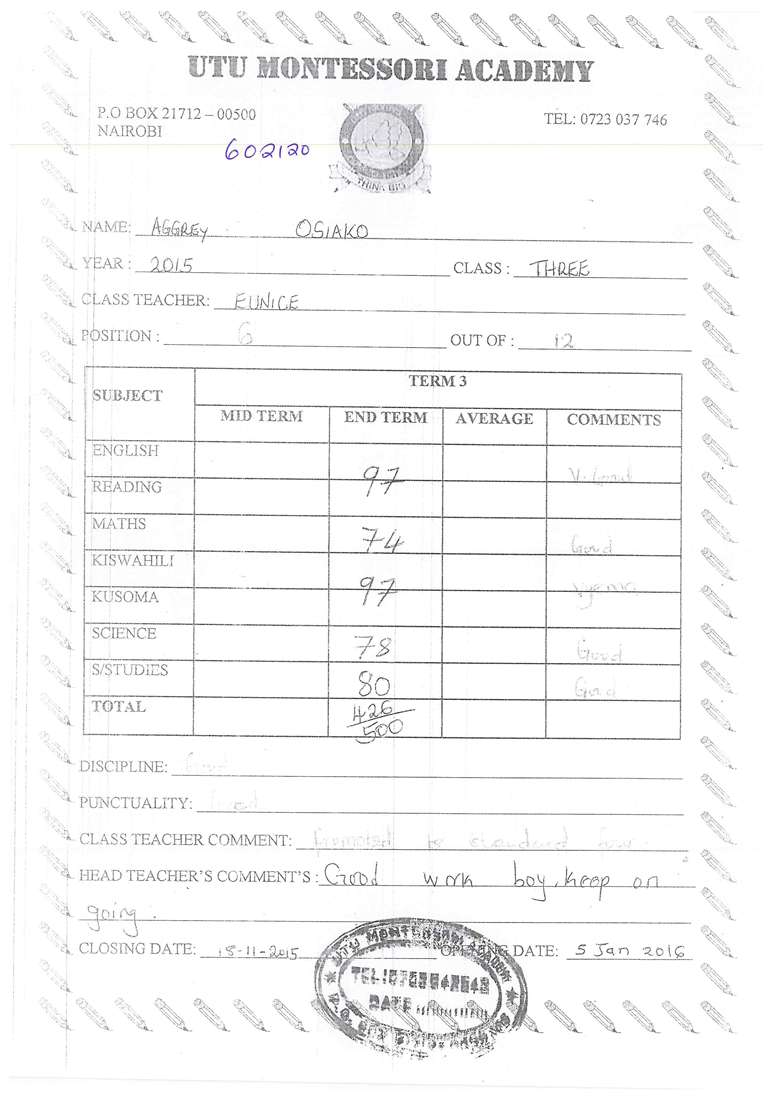 UTU MONTESSORI ACADEMY
P.O BOX 21712 – 00500
TEL: 0723 037 746
NAIROBI
602120
THINK BIG
NAME: AGGREY OSIAKO
YEAR : 2015 CLASS : THREE
CLASS TEACHER: EUNICE
POSITION : 6 OUT OF : 12
SUBJECT TERM 3
MID TERM END TERM AVERAGE COMMENTS
ENGLISH
READING 97 V. Good
MATHS 74 Good
KISWAHILI
KUSOMA 97 Vyema
SCIENCE 78 Good
S/STUDIES 80 Good
TOTAL 426/500
DISCIPLINE: Good
PUNCTUALITY: Good
CLASS TEACHER COMMENT: Promoted to standard four
HEAD TEACHER'S COMMENT'S : Good work boy, keep on
going .
CLOSING DATE: 18-11-2015 OPENING DATE: 5 Jan 2016
UTU MONTESSORI ACADEMY
DATE